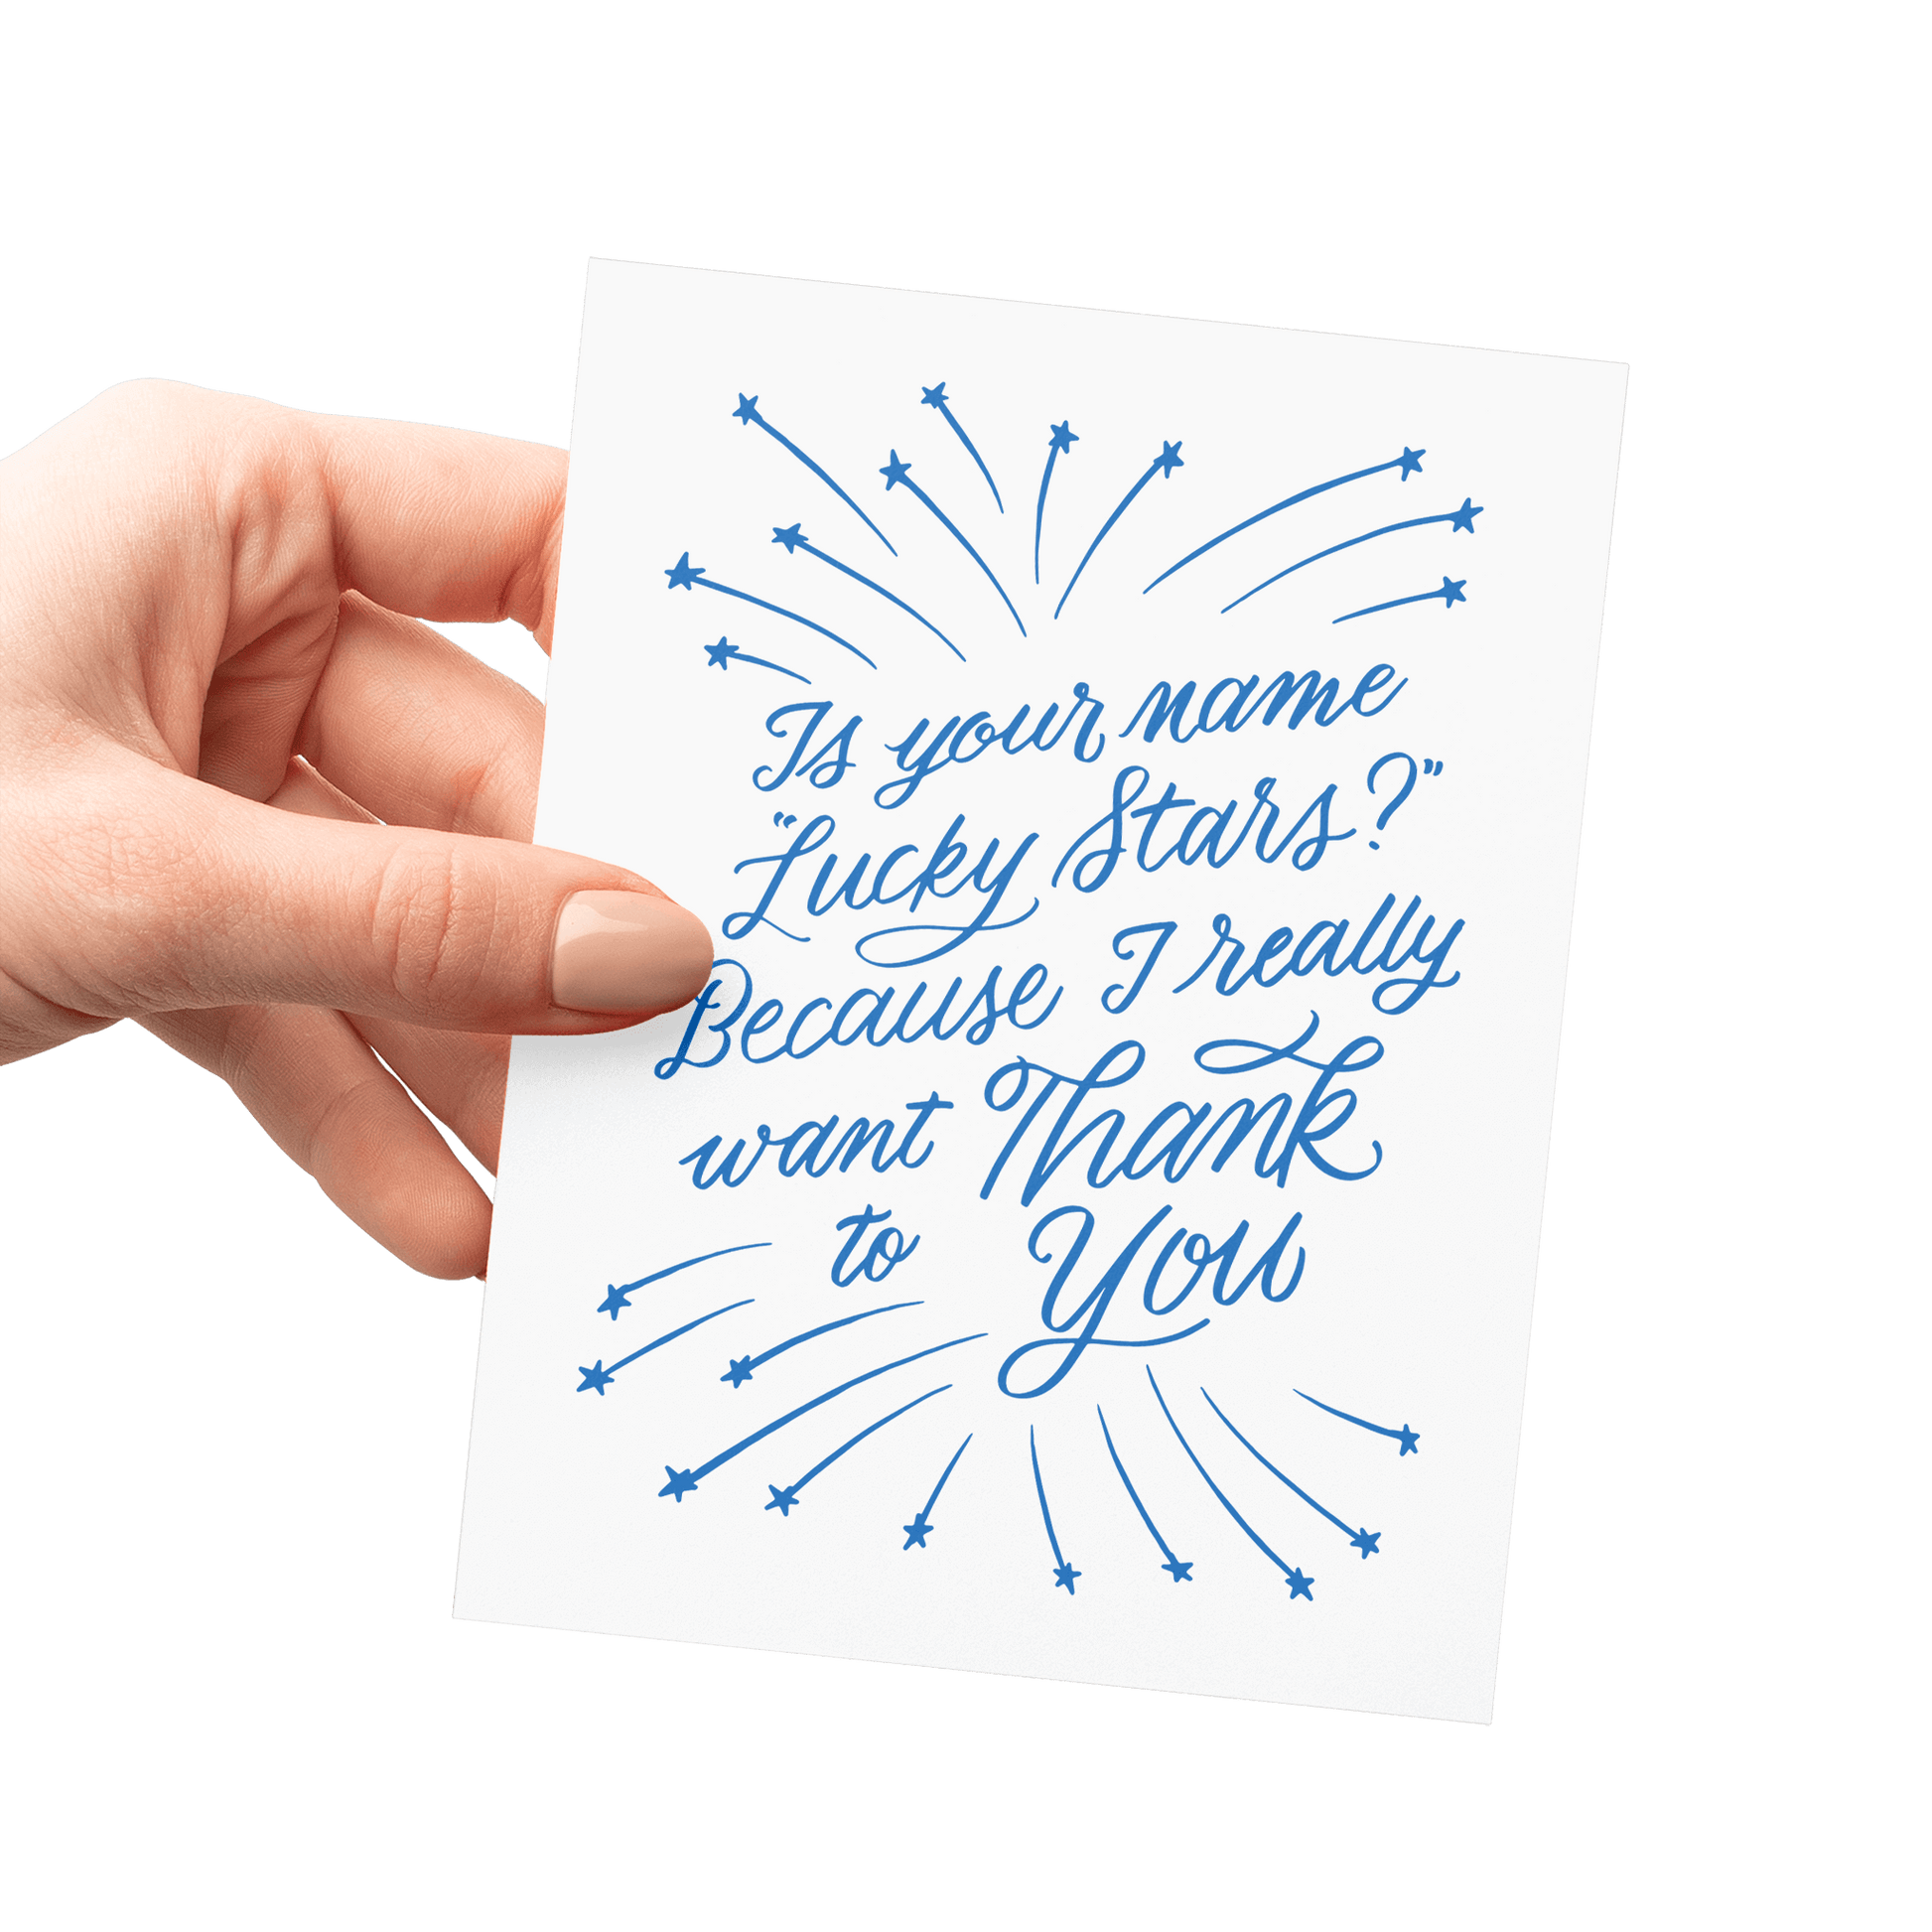 Is your name
"Lucky Stars?"
Because I really
want Thank
to You